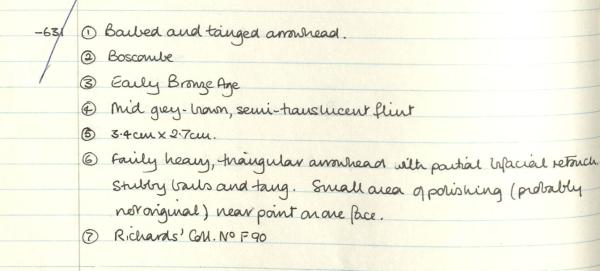 -631 ① Barbed and tanged arrowhead.
② Boscombe
③ Early Bronze Age
④ Mid grey-brown, semi-translucent flint
⑤ 3.4cm x 2.7cm.
⑥ Fairly heavy, triangular arrowhead with partial bifacial retouch.
Stubby barbs and tang. Small area of polishing (probably
not original) near point on one face.
⑦ Richards' Coll. No F90